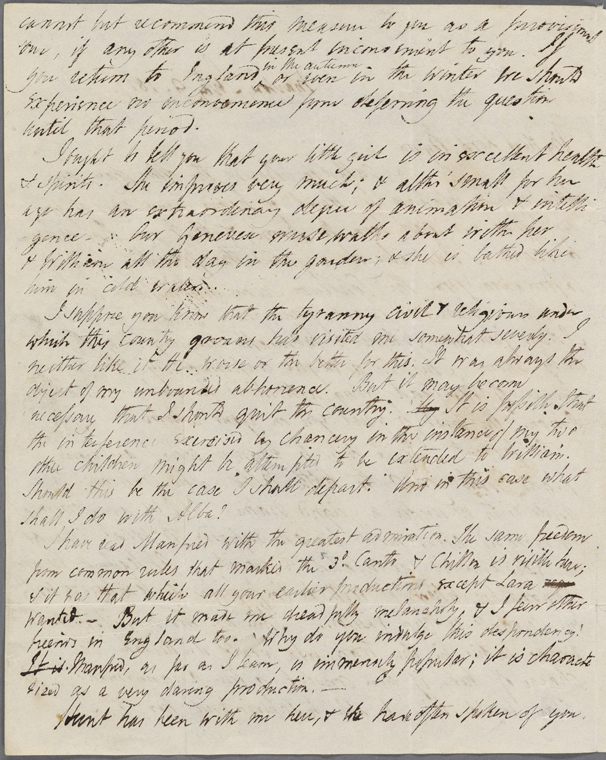 cannot but recommend this measure to you as a provisional
one, if any other is at present inconvenient to you. If
you return to England in the autumn, or even in the winter we should
experience no inconvenience from deferring the question
until that period.
I ought to tell you that your little girl is in excellent health
& spirits. She improves very much; & altho' small for her
age has an extraordinary degree of animation & intelli
gence. Our Genevese nurse walks about with her
& William all the day in the garden; & she is bathed like
him in cold water.
I suppose you know that the tyranny civil & religious under
which this country groans has visited me somewhat severely. I
neither like it the worse or the better for this. It was always the
object of my unbounded abhorrence. But it may become
necessary that I should quit the country. It is possible that
the interference exercised by Chancery in the instance of my two
other children might be attempted to be extended to William.
Should this be the case I shall depart. And in this case what
shall I do with Alba?
I have read Manfred with the greatest admiration. The same freedom
from common rules that marked the 3d. Canto & Chillon is visible here;
& it was that which all your earlier productions except Lara
wanted.— But it made me dreadfully melancholy, & I fear other
friends in England too. Why do you indulge this despondency?
It is Manfred, as far as I learn, is immensely popular; it is characte
rized as a very daring production.—
Hunt has been with me here, & we have often spoken of you.